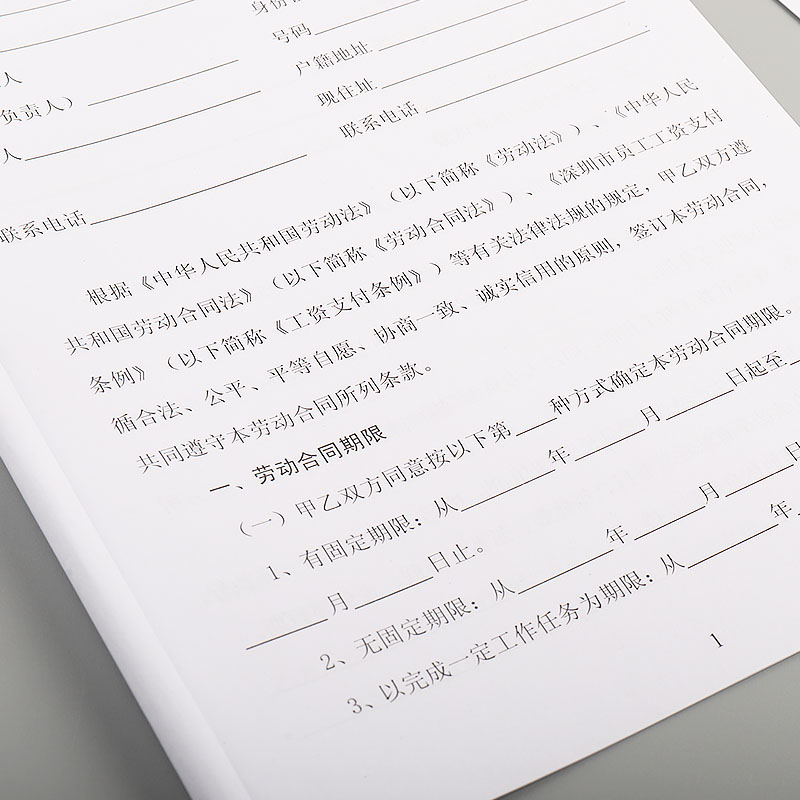 身份
号码
人 户籍地址
负责人） 现住址
人 联系电话
联系电话
根据《中华人民共和国劳动法》（以下简称《劳动法》）、《中华人民
共和国劳动合同法》（以下简称《劳动合同法》）、《深圳市员工工资支付
条例》（以下简称《工资支付条例》）等有关法律法规的规定，甲乙双方遵
循合法、公平、平等自愿、协商一致、诚实信用的原则，签订本劳动合同，
共同遵守本劳动合同所列条款。
一、劳动合同期限
（一）甲乙双方同意按以下第____种方式确定本劳动合同期限。
1、有固定期限：从______年______月______日起至
______月______日止。
2、无固定期限：从______年______月______日
3、以完成一定工作任务为期限：从______年
1